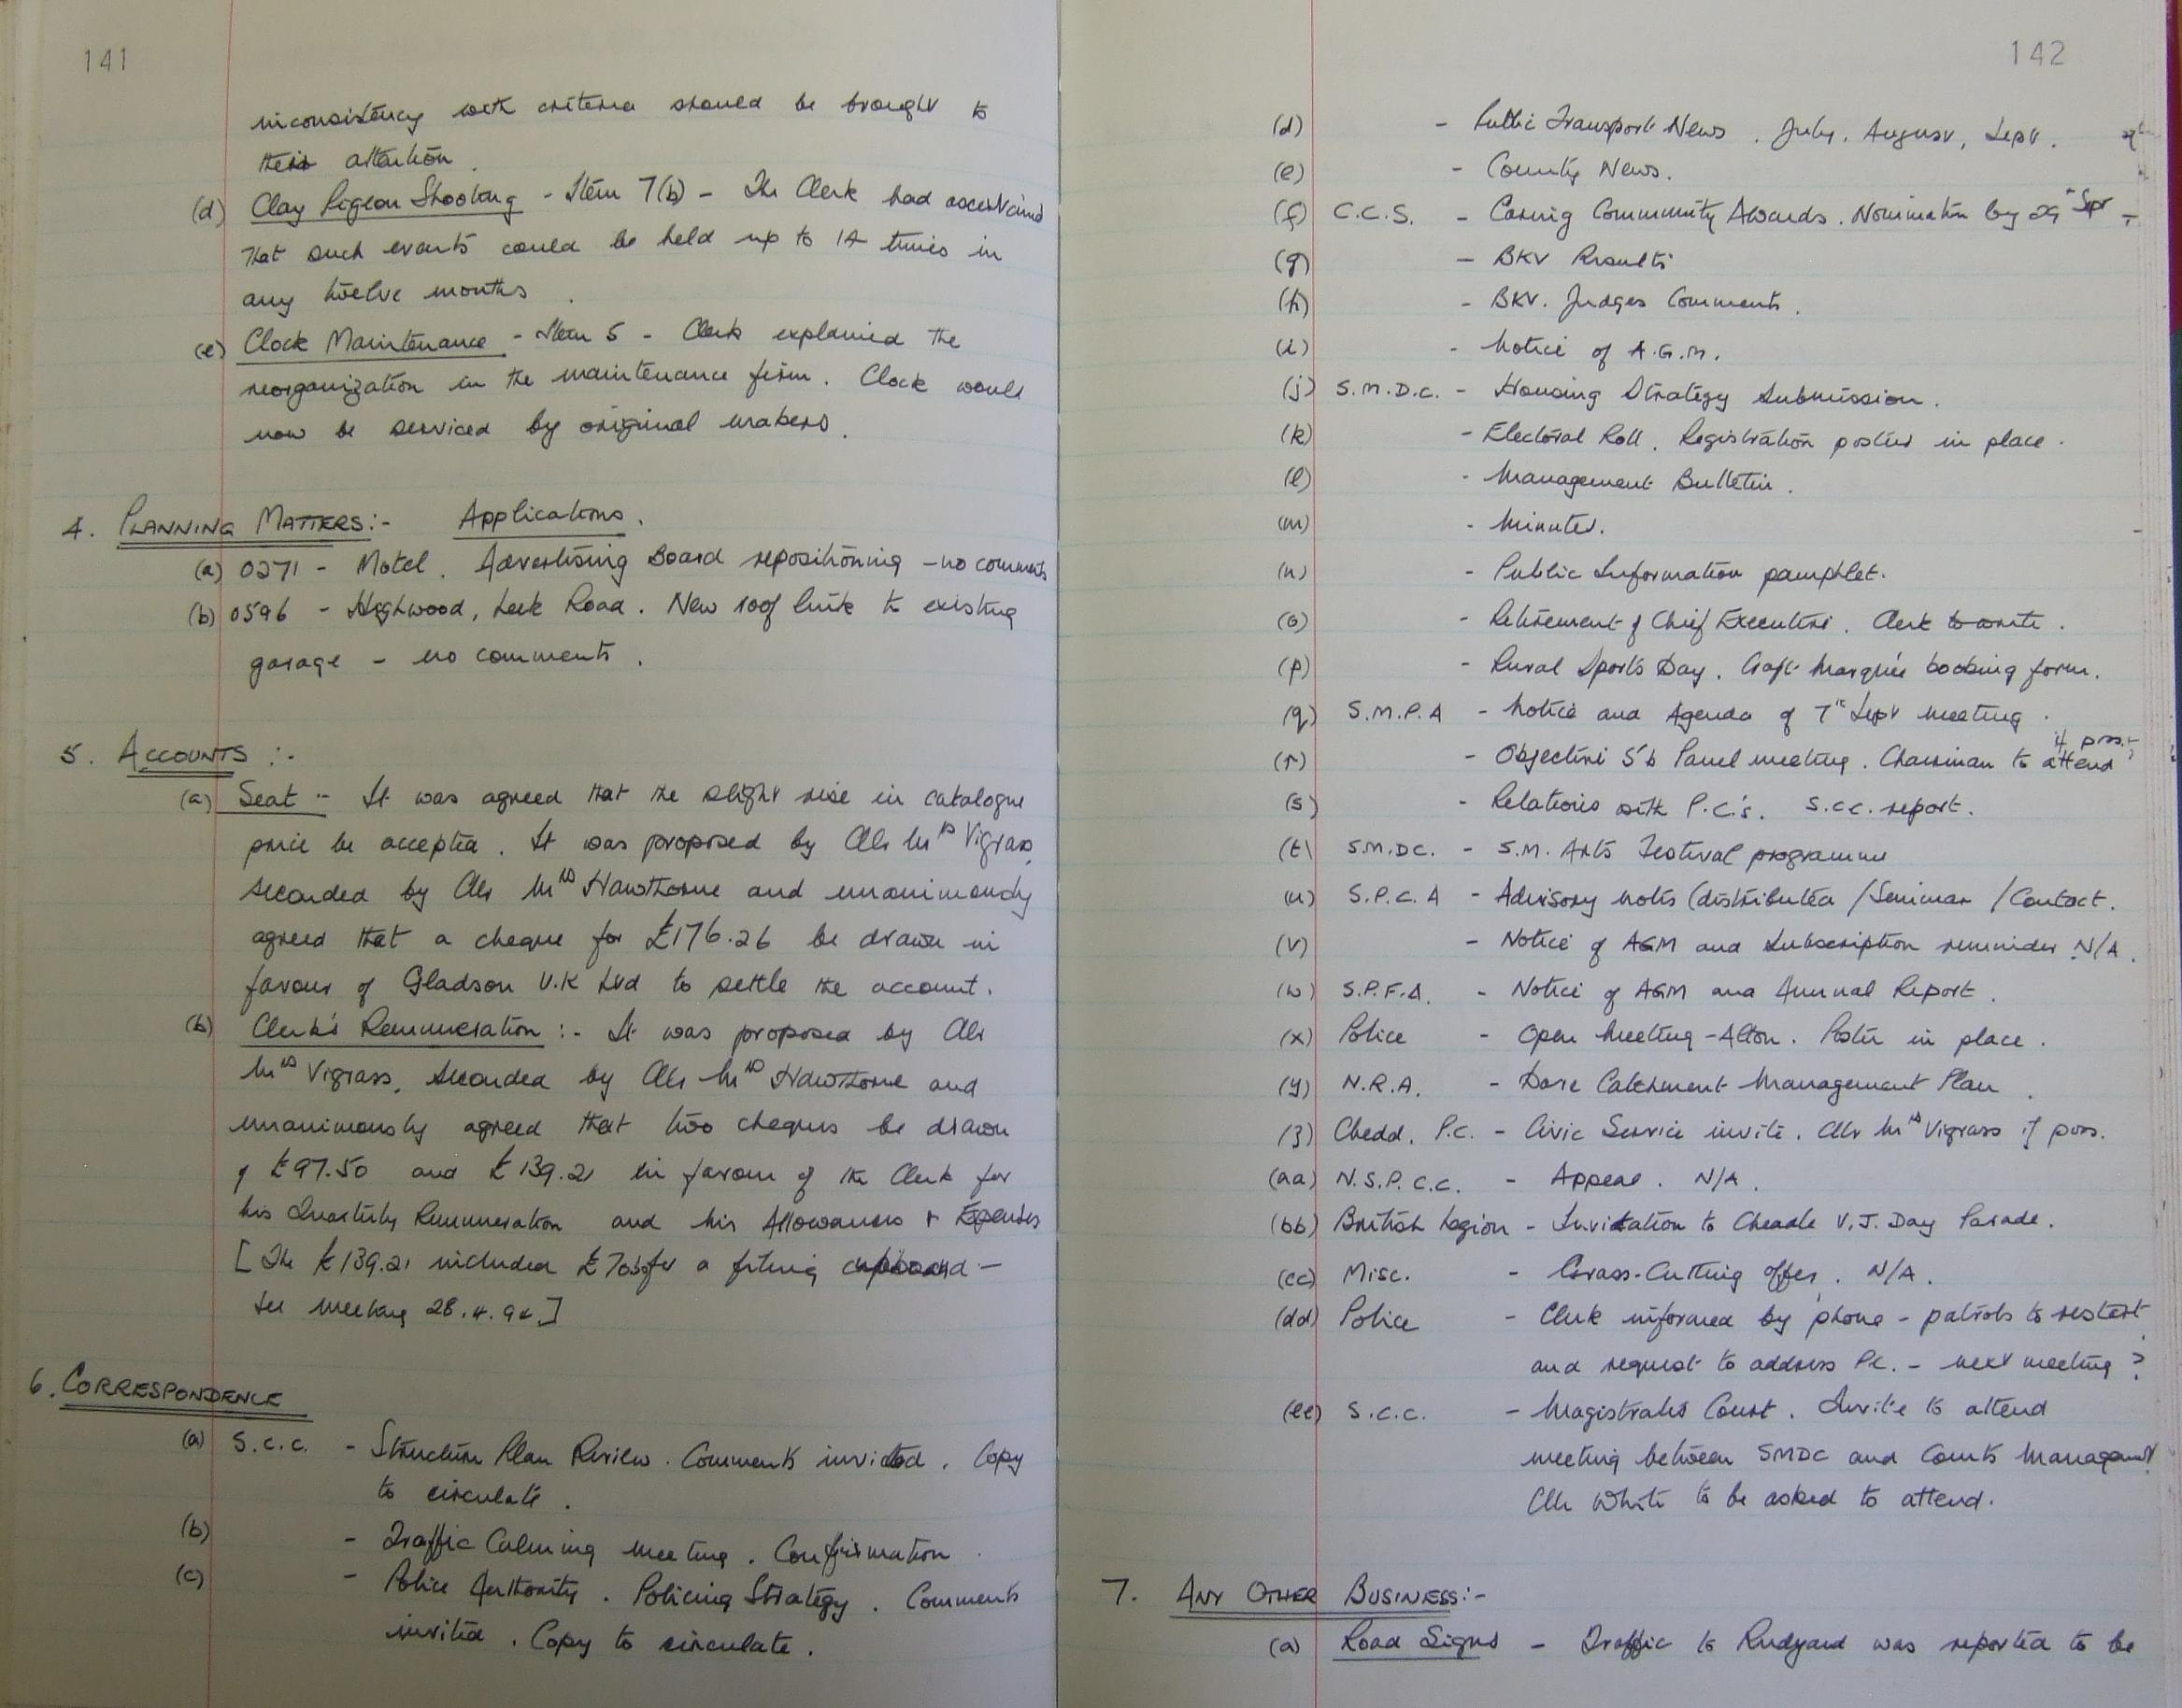 141
inconsistency with criteria should be brought to
their attention.
(d) Clay Pigeon Shooting - Item 7(b) - The Clerk had ascertained
that such events could be held up to 14 times in
any twelve months.
(e) Clock Maintenance - Item 5 - Clerk explained the
reorganization in the maintenance firm. Clock would
now be serviced by original makers.
4. PLANNING MATTERS:- Applications.
(a) 0271 - Motel. Advertising Board repositioning - no comments
(b) 0596 - Highwood, Leek Road. New roof link to existing
garage - no comments.
5. ACCOUNTS :-
(a) Seat :- It was agreed that the slight rise in catalogue
price be accepted. It was proposed by Cllr Mrs Vigrass,
seconded by Cllr Mrs Hawthorne and unanimously
agreed that a cheque for £176.26 be drawn in
favour of Gladson U.K Ltd to settle the account.
(b) Clerk's Remuneration :- It was proposed by Cllr
Mrs Vigrass, seconded by Cllr Mrs Hawthorne and
unanimously agreed that two cheques be drawn
of £97.50 and £139.21 in favour of the Clerk for
his Quarterly Remuneration and his Allowances & Expenses
[The £139.21 included for a filing cupboard -
see meeting 28.4.94.]
6. CORRESPONDENCE
(a) S.C.C. - Structure Plan Review. Comments invited. Copy
to circulate.
(b) - Traffic Calming meeting. Confirmation.
(c) - Police Authority. Policing Strategy. Comments
invited. Copy to circulate.
142
(d) - Public Transport News. July, August, Sept.
(e) - County News.
(f) C.C.S. - Caring Community Awards. Nomination by 29th Sept
(g) - BKV Results
(h) - BKV. Judges Comments.
(i) - Notice of A.G.M.
(j) S.M.D.C. - Housing Strategy Submission.
(k) - Electoral Roll. Registration poster in place.
(l) - Management Bulletin.
(m) - Minutes.
(n) - Public Information pamphlet.
(o) - Retirement of Chief Executive. Clerk to write.
(p) - Rural Sports Day. Craft Marquee booking form.
(q) S.M.P.A - Notice and Agenda of 7th Sept meeting.
(r) - Objective 5b Panel meeting. Chairman to attend if poss.
(s) - Relations with P.C.'s. S.C.C. report.
(t) S.M.DC. - S.M. Arts Festival programme
(u) S.P.C.A - Advisory notes (distributed / Seminar / Contact.
(v) - Notice of AGM and Subscription reminder N/A.
(w) S.P.F.A. - Notice of AGM and Annual Report.
(x) Police - Open Meeting - Alton. Poster in place.
(y) N.R.A. - Dove Catchment Management Plan.
(z) Chedd. P.C. - Civic Service invite. Cllr Mrs Vigrass if poss.
(aa) N.S.P.C.C. - Appeal. N/A.
(bb) British Legion - Invitation to Cheadle V.J. Day Parade.
(cc) Misc. - Grass-Cutting offer. N/A.
(dd) Police - Clerk informed by phone - patrols to restart
and request to address P.C. - next meeting?
(ee) S.C.C. - Magistrates Court. Invite to attend
meeting between SMDC and Courts Management
Cllr White to be asked to attend.
7. ANY OTHER BUSINESS:-
(a) Road Signs - Traffic to Rudyard was reported to be